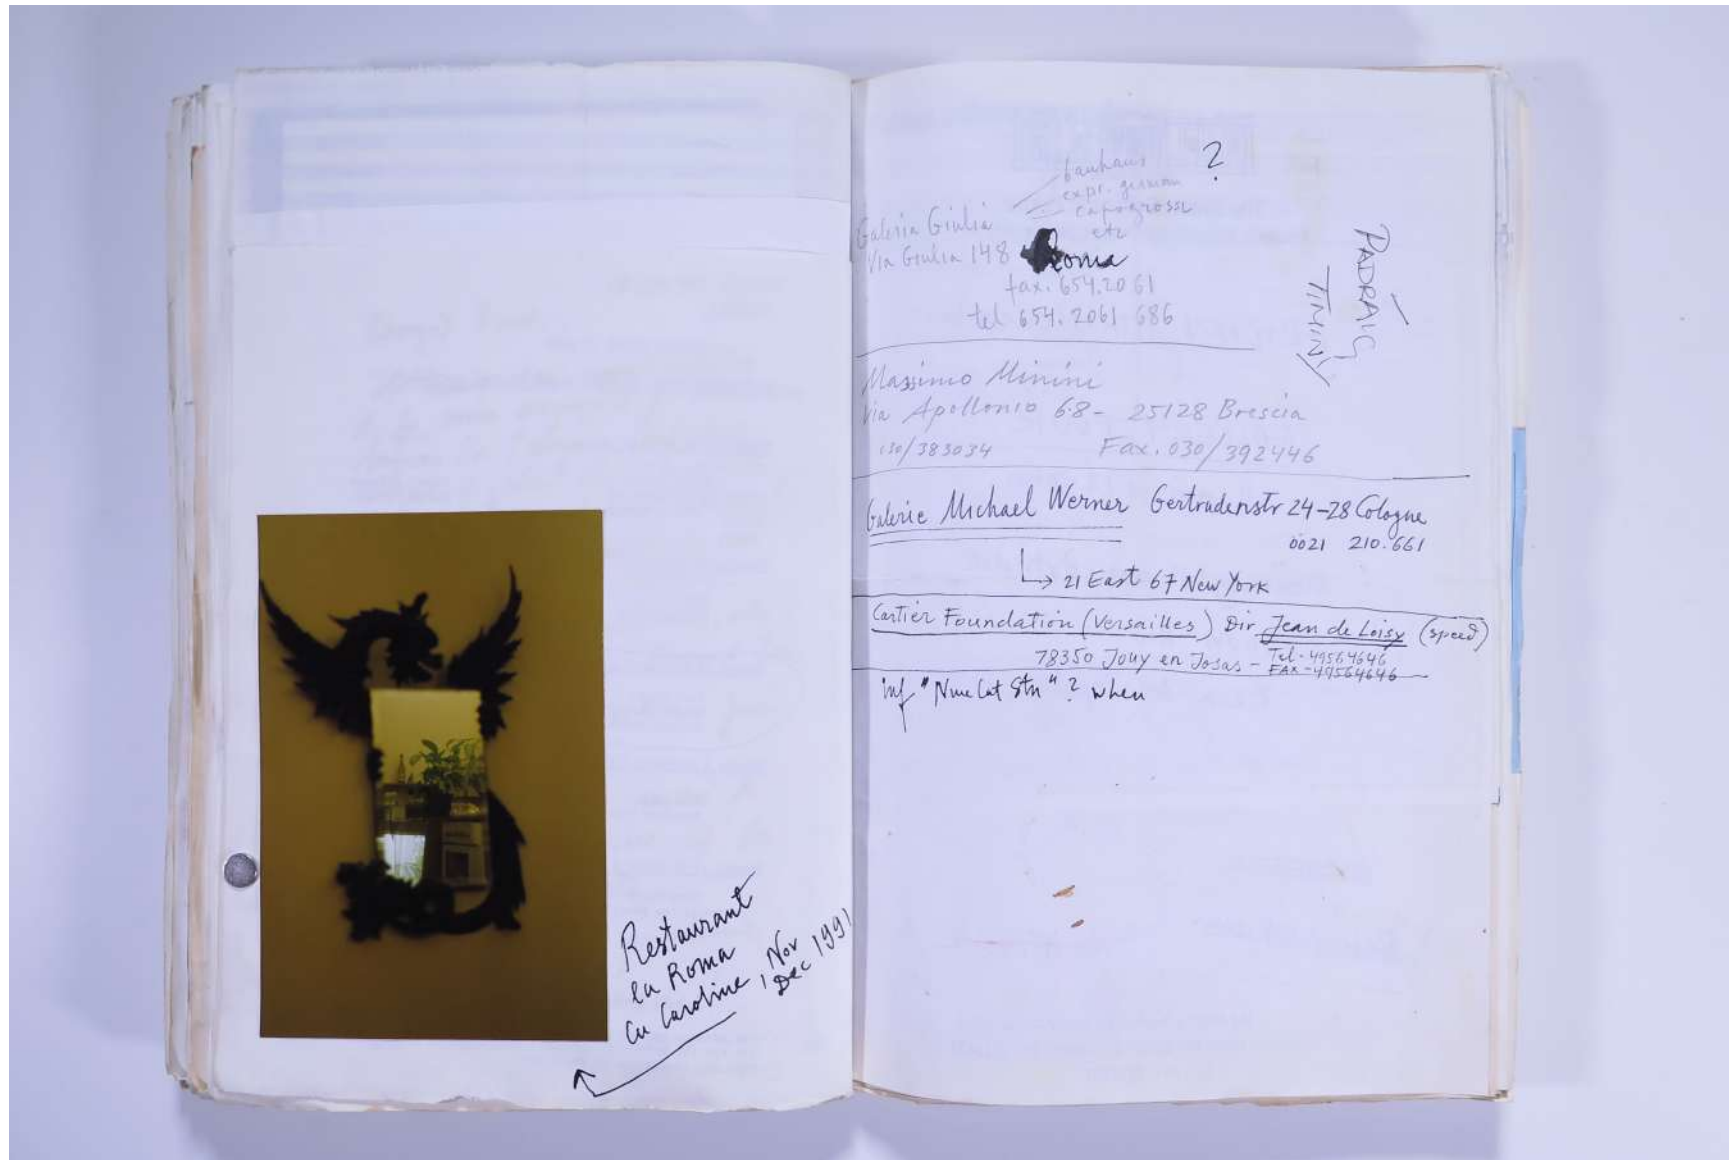 Restaurant
la Roma
cu Caroline, Nov
1 Dec 1991
?
bauhaus
expr. german
capogrossi
etc
Galeria Giulia
Via Giulia 148 Roma
fax. 654.2061
tel 654.2061 686
PADRAIG
TIMINY
Massimo Minini
Via Apollonio 68- 25128 Brescia
030/383034 Fax. 030/392446
Galerie Michael Werner Gertrudenstr 24-28 Cologne
0021 210.661
21 East 67 New York
Cartier Foundation (Versailles) Dir Jean de Loisy (speed)
78350 Jouy en Josas - Tel-49564646
FAX-49564646
inf " " ? when